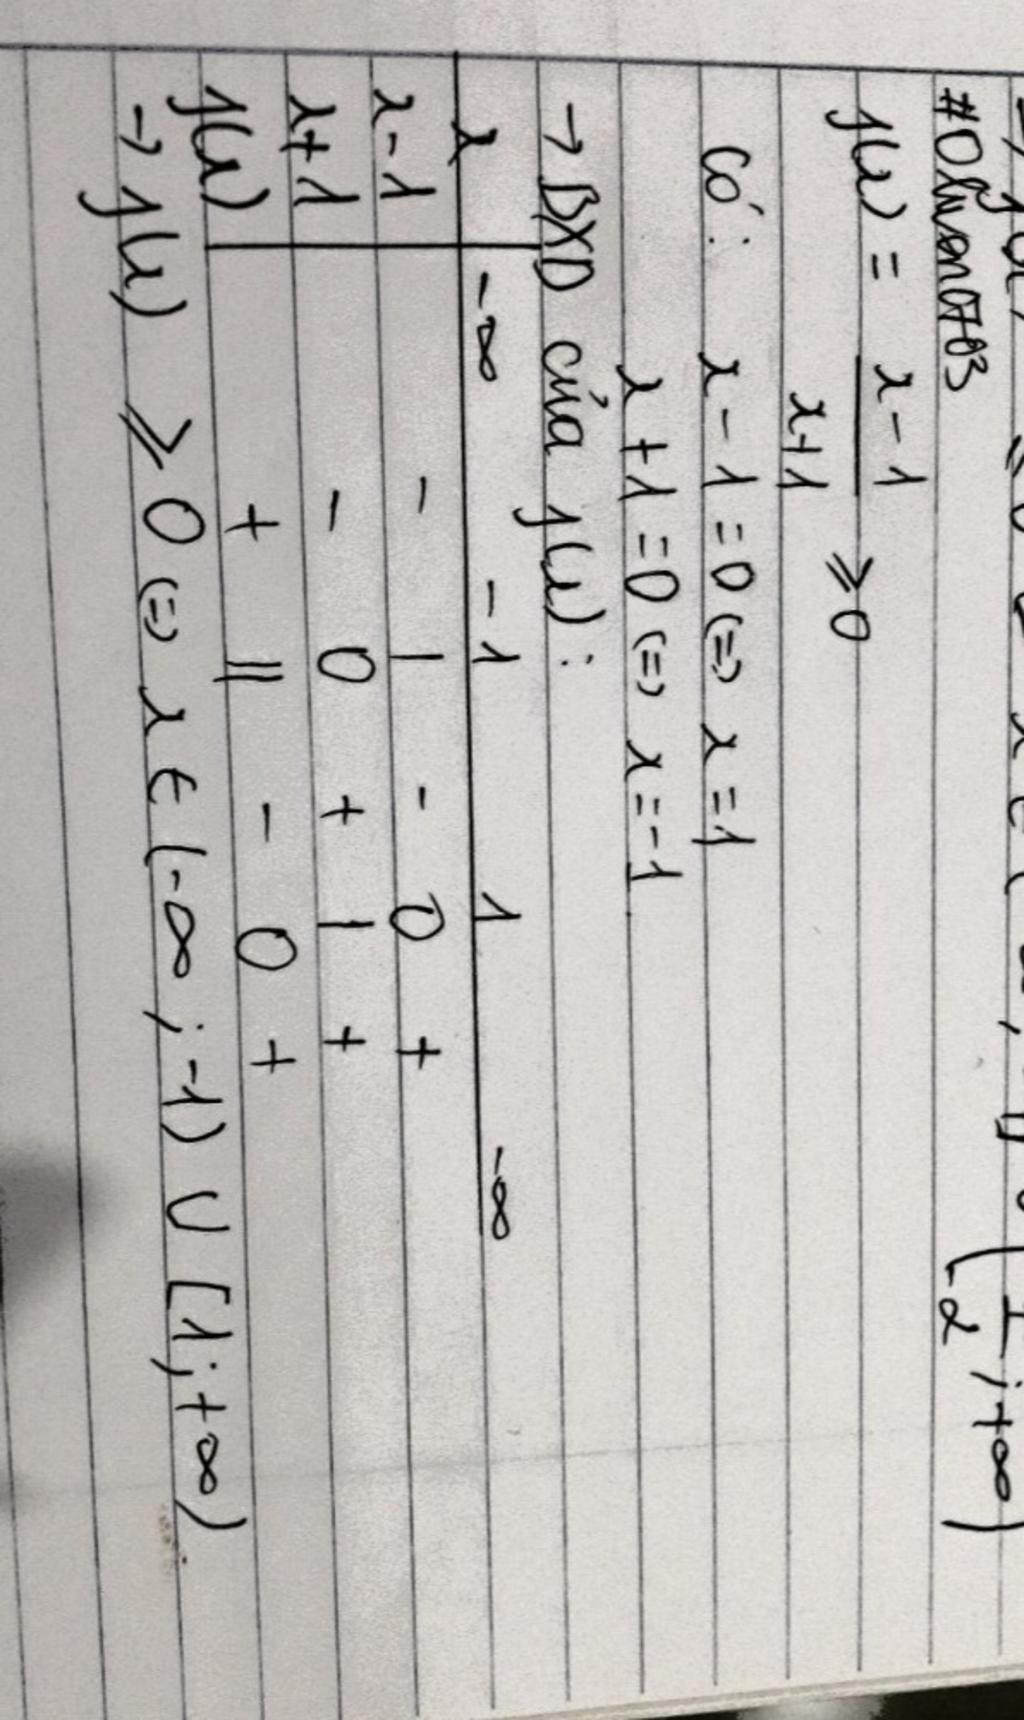 ≤ 0 x ∈ ( ; -1) ∪ ( 1/2 ; +∞)
f(x) = x-1/x+1 ≥ 0
Có: x - 1 = 0 (=) x = 1
x + 1 = 0 (=) x = -1
→ BXD của f(x) :
x -∞ -1 1 -∞
x-1 - | - 0 +
x+1 - 0 + | +
f(x) + || - 0 +
→ f(x) ≥ 0 (=) x ∈ (-∞ ; -1) ∪ [1; +∞)